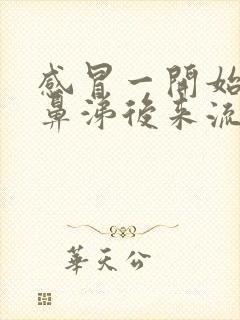 感冒一開始
鼻涕後来流
華天公